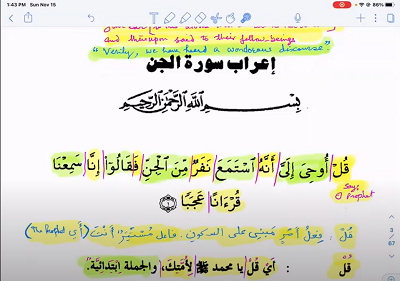 1:43 PM Sun Nov 15
86%
and thereupon said to their fellow-beings
"Verily, we have heard a wondrous discourse"
إعراب سورة الجن
بِسْمِ اللَّهِ الرَّحْمَٰنِ الرَّحِيمِ
قُلْ أُوحِىَ إِلَىَّ أَنَّهُ ٱسْتَمَعَ نَفَرٌ مِّنَ ٱلْجِنِّ فَقَالُوٓا۟ إِنَّا سَمِعْنَا
Say: O Prophet
قُرْءَانًا عَجَبًا ١
قُلْ : فِعلُ أمرٍ مَبنِي على السكون. فاعل "مُسْتَتِر" أَنْتَ (أي The Prophet)
3
/
67
قُل : أي قُل يا محمد ﷺ لِأُمَّتِكَ، والجملة ابتدائيَّة.